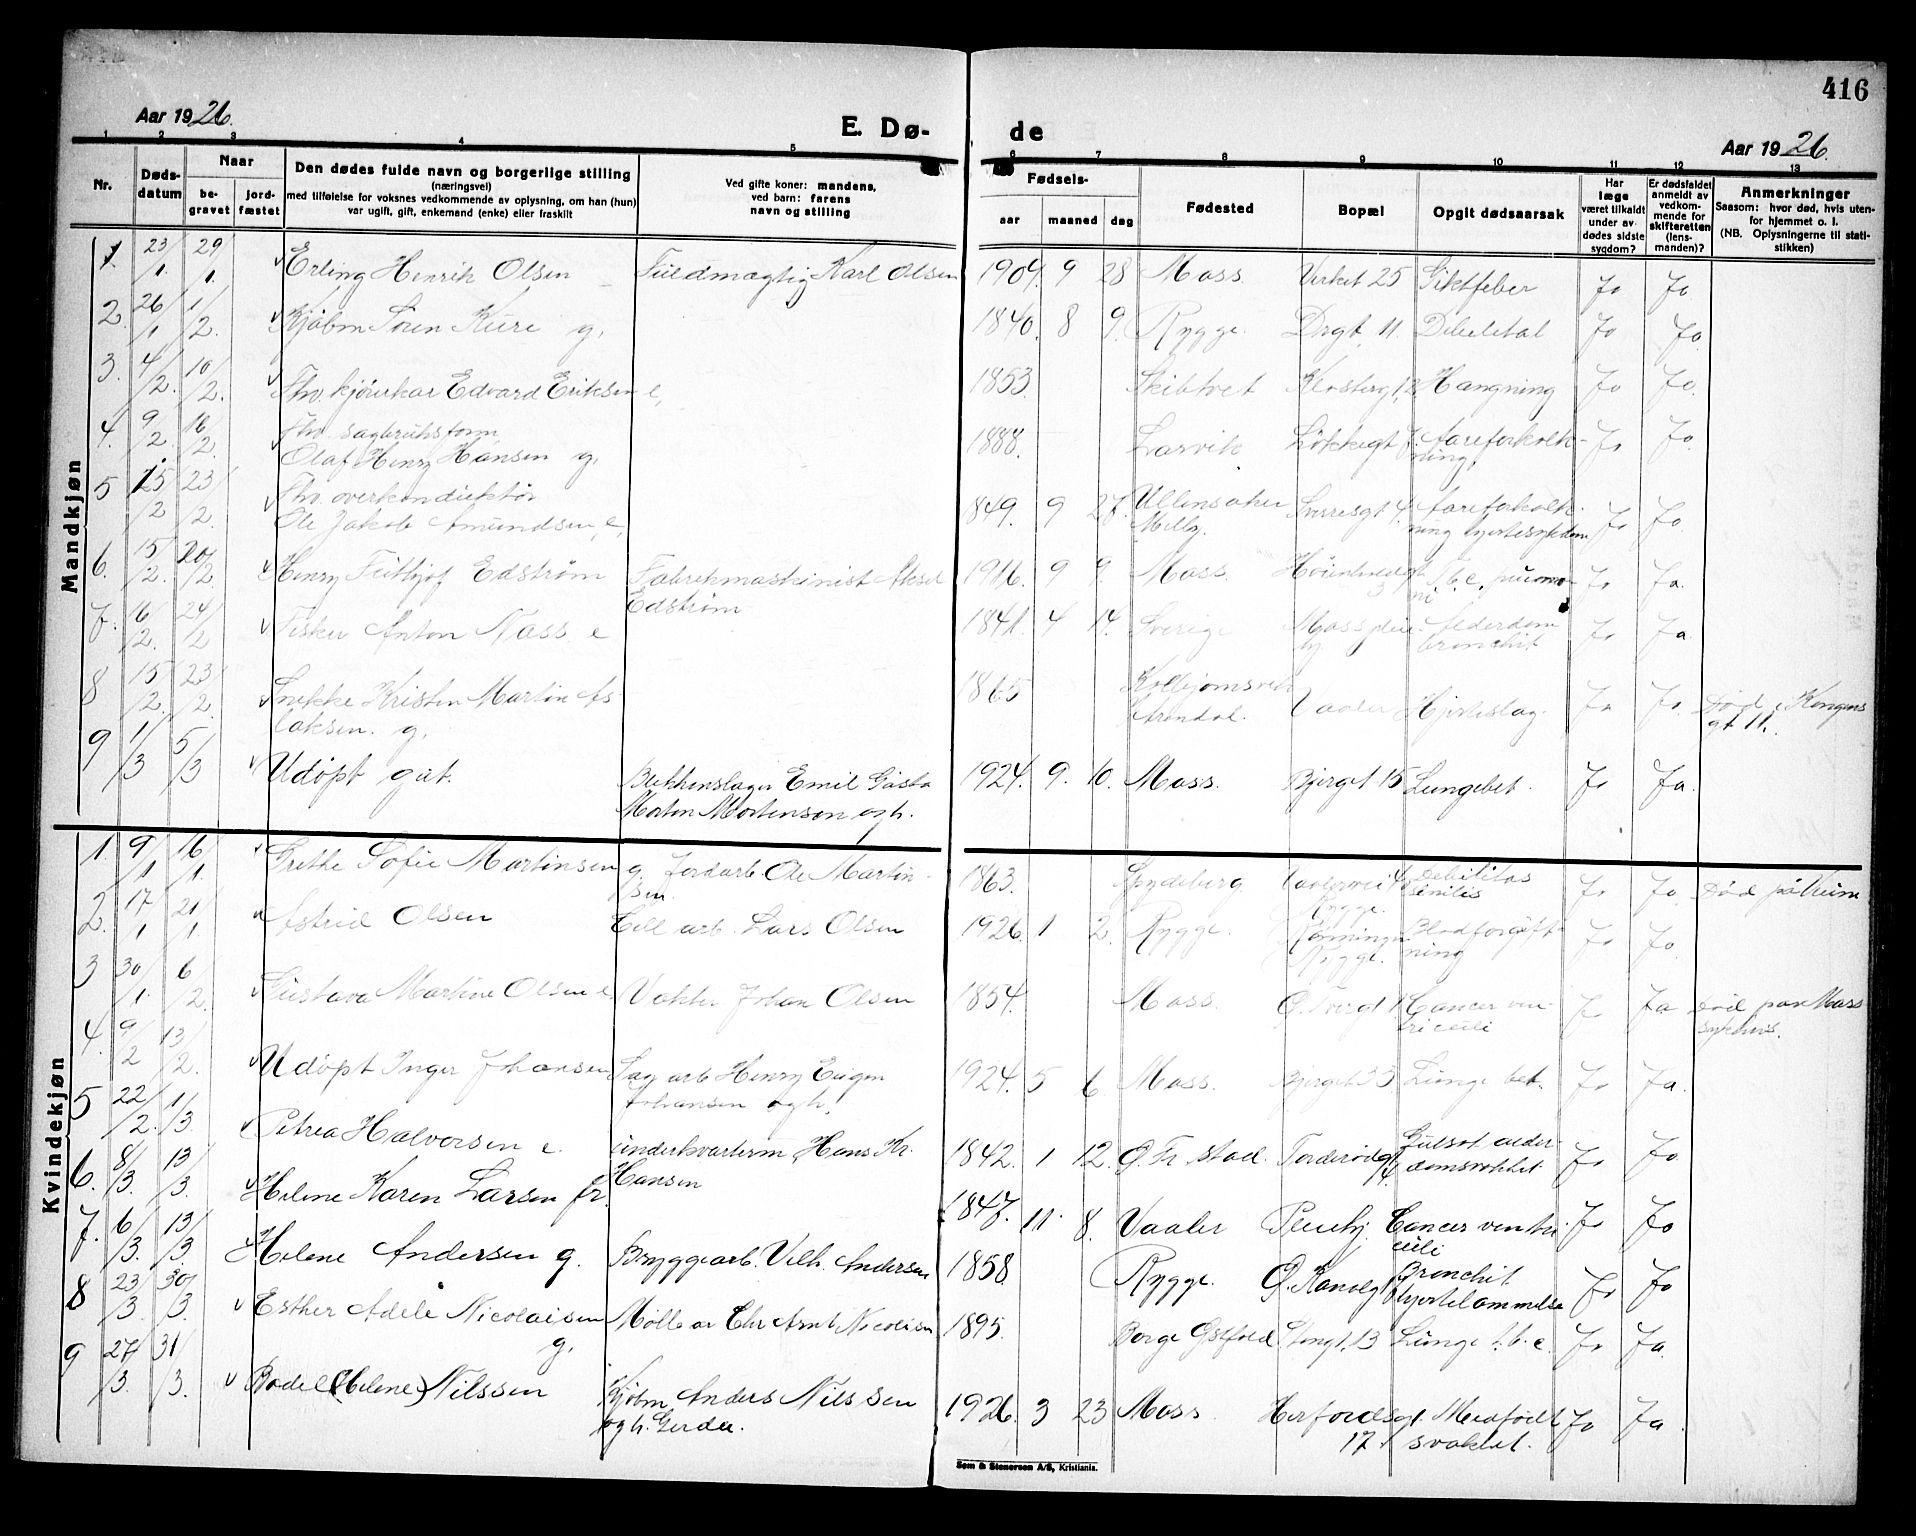 416
Aar 1926.
E. Dø-
de
Aar 1926.
1 2 3 4 5 6 7 8 9 10 11 12 13
Nr.
Døds-
datum
Naar
be-
gravet
jord-
fæstet
Den dødes fulde navn og borgerlige stilling
(næringsvei)
med tilføielse for voksnes vedkommende av oplysning, om han (hun)
var ugift, gift, enkemand (enke) eller fraskilt
Ved gifte koner: mandens,
ved barn: farens
navn og stilling
Fødsels-
aar maaned dag
Fødested
Bopæl
Opgit dødsaarsak
Har
læge
været tilkaldt
under av-
dødes sidste
sygdom?
Er dødsfaldet
anmeldt av
vedkom-
mende for
skifteretten
(lens-
manden)?
Anmerkninger
Saasom: hvor død, hvis uten-
for hjemmet o. l.
(NB. Oplysningerne til stati-
stikken)
Mandkjøn
1. 23/1. 29/1. Erling Henrik Olsen Fuldmægtig Karl Olsen 1909. 9 28 Moss. Verket 25 Giktfeber Ja Ja
2. 26/1 1/2. Kjøbm Søren Kure g. 1840. 8 9. Rygge. Drgt. 11. Ja Ja
3. 4/2. 10/2. Fhv. kjørekar Edvard Eriksen e. 1853. Skibtvet Hængning Ja Ja
4. 9/2. 16/2. Fhv. sagbruksform
Olaf Henry Hansen g. 1888. Larvik Løkkegt Aareforkalk-
ning. Ja Ja
5 15/2 23/2. Fhv. overkonduktør
Ole Jakob Amundsen, e. 1849. 9 27. Ullensaker Sverresgt 4. Aareforkalk-
ning hjertesykdom Ja Ja
6. 15/2. 20/2 Henry Fritjof Edstrøm Fabrikmaskinist Aksel
Edstrøm 1916. 9 9. Moss. Ja Ja.
7. 16/2. 24/2 Fisker Anton Næss e 1841. 4 14. Sverige Moss pleie- Alderdom
hj. bronchit Ja Ja.
8 15/2. 23/2. Snekke Kristen Martin As
laksen. g. 1865 Arendal. Vaaler Hjerteslag. Ja Ja. Død i Kongens
gt 11.
9 1/3 5/3 Udøpt gut. Blikkenslager Emil Gøsta
Morten Mortensen og h. 1924. 9. 10. Moss. Bjerget 15 Lungebet. Ja Ja.
Kvindekjøn
1. 9/1 16/1. Grethe Sofie Martinsen g. Jordarb. Ole Martin-
sen 1863. Spydeberg Vaalervei Debilitas
Rygge. senilis Ja Ja Død på
2. 17/1 21/1 Astrid Olsen Cell arb. Lars Olsen 1926. 1 2. Rygge. Blodforgift-
Rygge. ning Ja Ja
3 30/1. 6/2. Gustava Martine Olsen e. Vakter Johan Olsen 1854. Moss. Ø. Tvergt 1 Cancer ven-
triculi Ja Ja Død paa Moss
sykehus.
4. 9/2 13/2. Udøpt Inger Johansen Sag arb Henry Eugen
Johansen og h. 1924. 5 6 Moss. Bjerget 33 Lunge bet. Ja Ja.
5 22/2. 1/3 Petrea Halvorsen e. underkvarterm Hans Kr.
Hansen 1842. 1 12. Ø. Fr. stad. Gulsot alder-
domsvakhet. Ja Ja
6. 8/3. 13/3. Helene Karen Larsen fr. 1847. 11. 8. Vaaler Pleiehj. Cancer ventri
culi Ja Ja
7. 6/3. 13/3. Helene Andersen g. Bryggearb. Vilh. Andersen 1858. Rygge. Ø. Kanalgt Bronchit
hjertelammelse Ja Ja
8 23/3. 30/3. Esther Adele Nicolaisen
g. Mølle ar Chr Arnt Nicolaisen 1895. Borge Østfold Stengt. 13 Lunge t.b.c. Ja Ja.
9 27/3. 31/3. Bodel (Helene) Nilssen Kjøbm Anders Nilssen
og h. Gerda. 1926. 3 23 Moss Herfordsgt. Medfødt
17 svakhet. Ja Ja
Sem & Stenersen A/S, Kristiania.